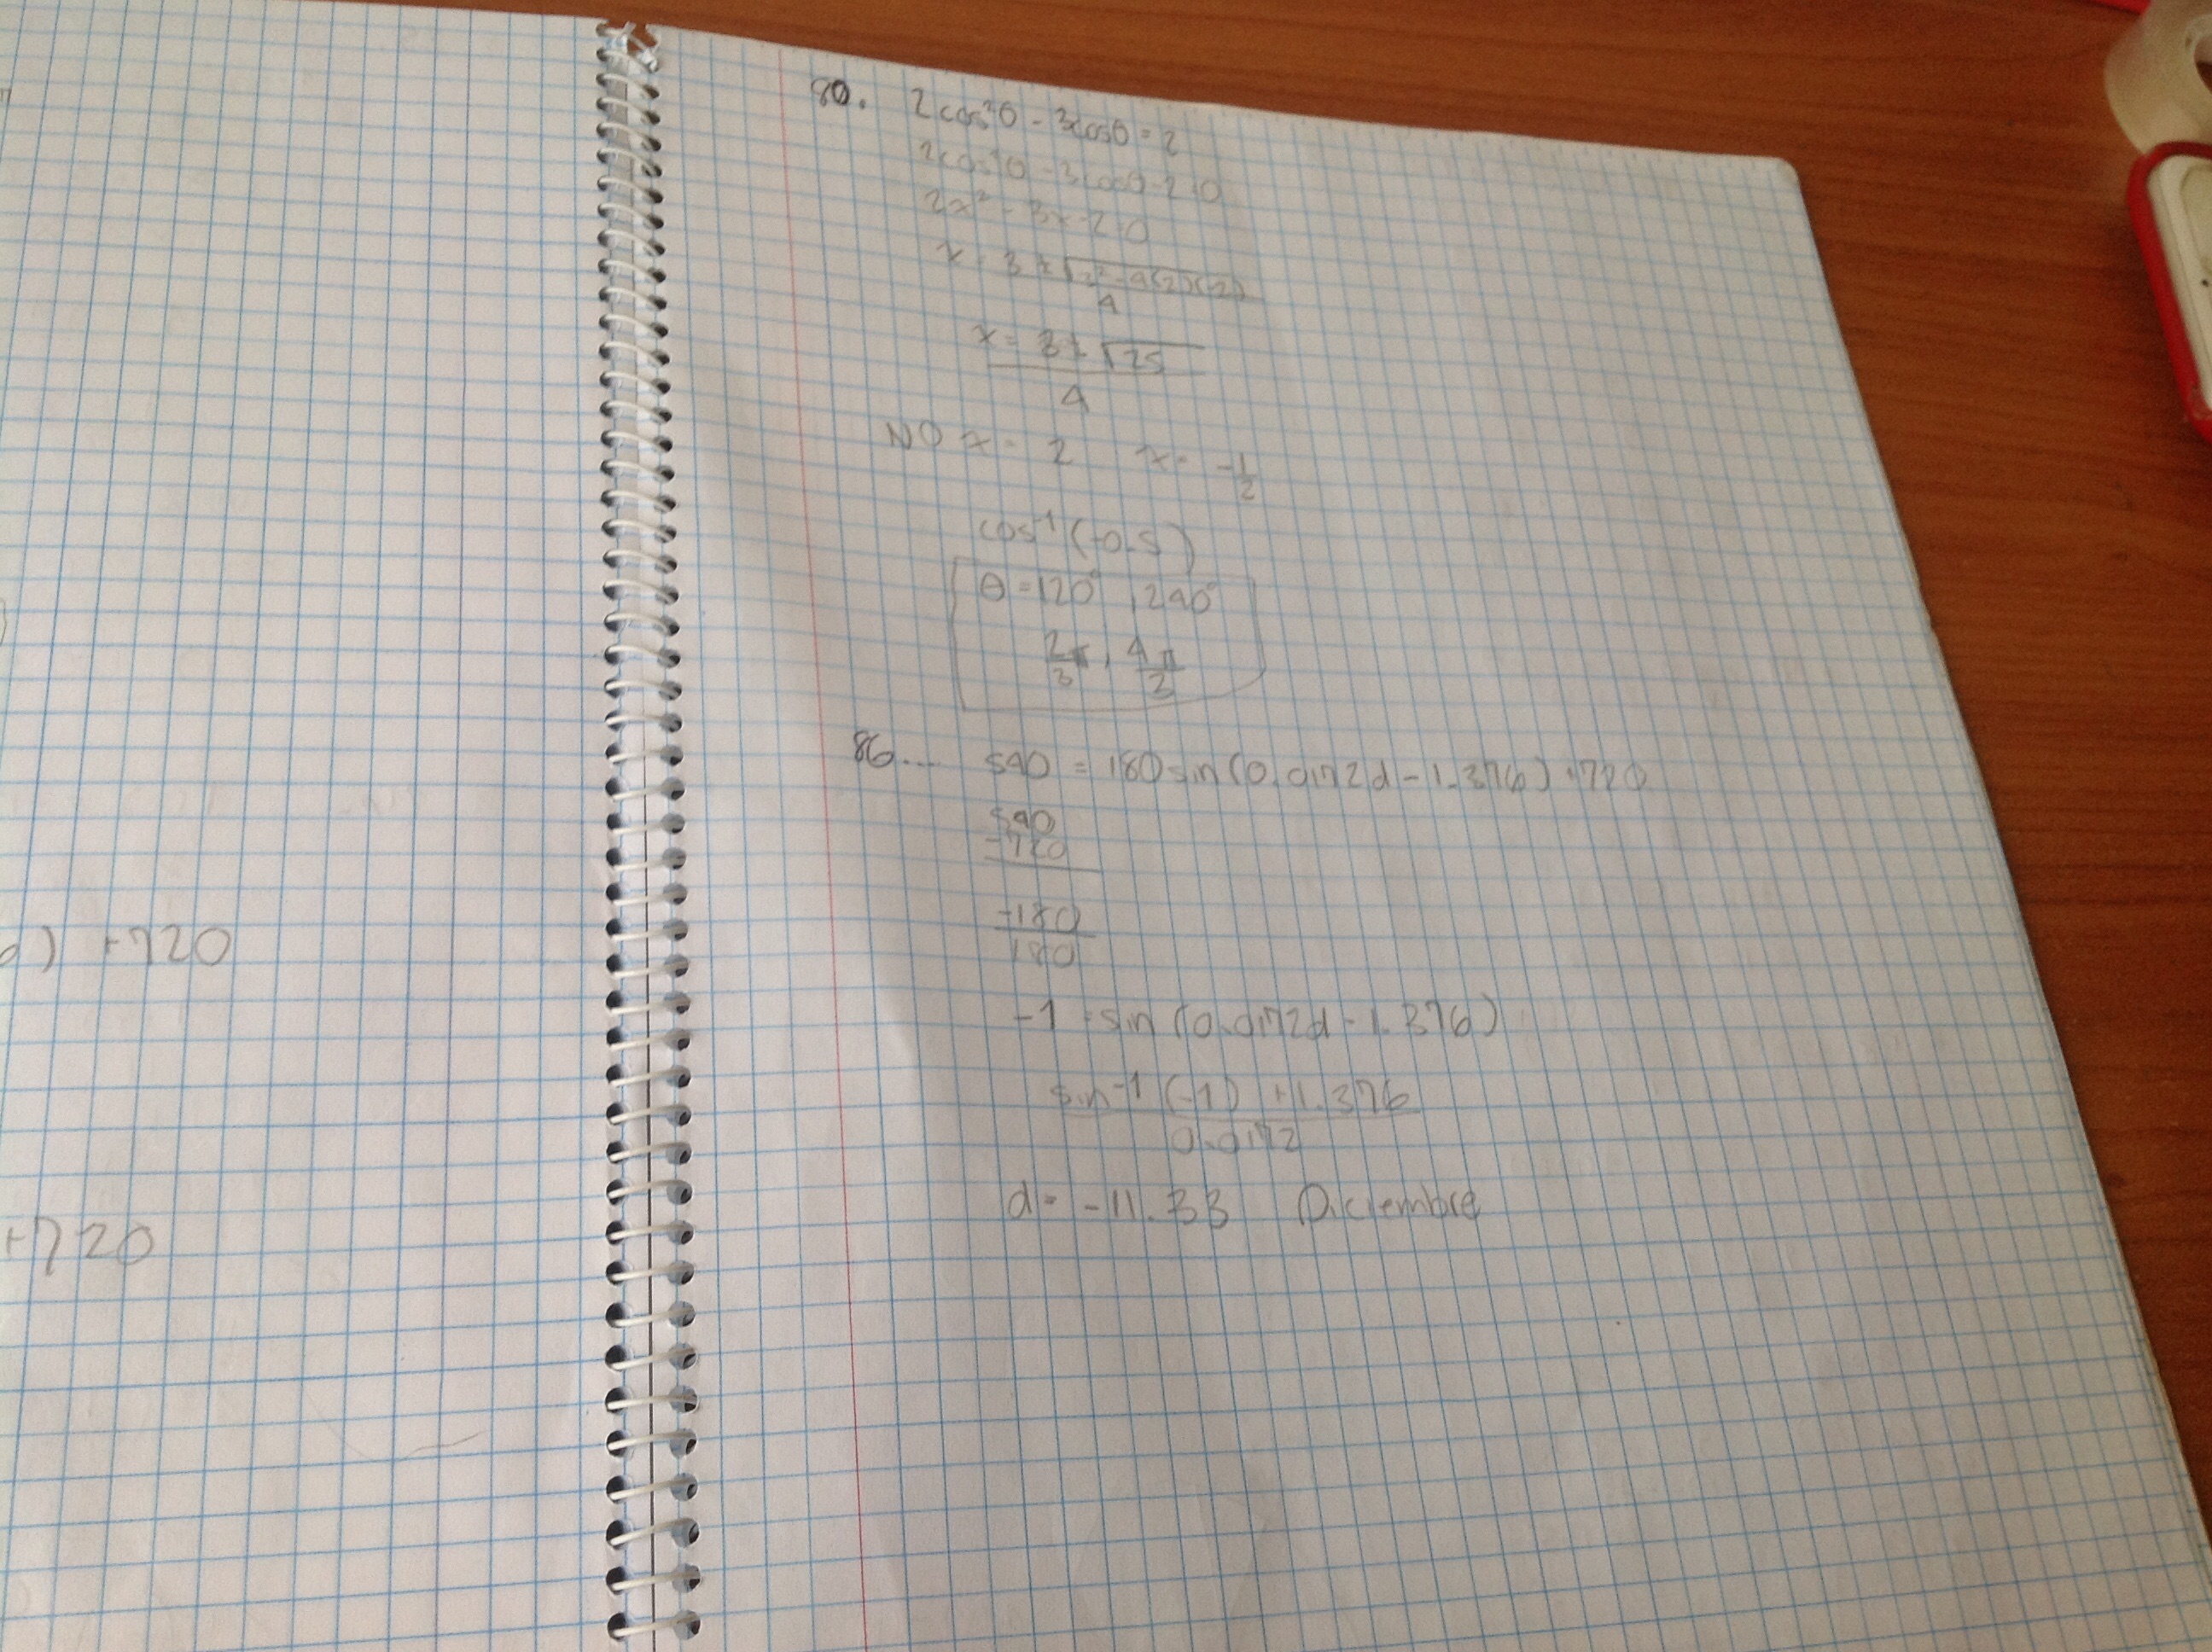 ) +720
+720
80. 2cos²θ - 3cosθ = 2
2cos²θ - 3cosθ - 2 = 0
2x² - 3x - 2 = 0
x = 3 ± √3² - 4(2)(-2)
4
x = 3 ± √25
4
NO x = 2 x = -1/2
cos⁻¹(-0.5)
θ = 120°, 240°
2/3 π, 4π/3
86... 540 = 180sin(0.0172d - 1.376) +720
540
-720
-180
180
-1 = sin(0.0172d - 1.376)
sin⁻¹(-1) +1.376
0.0172
d = -11.33 Diciembre